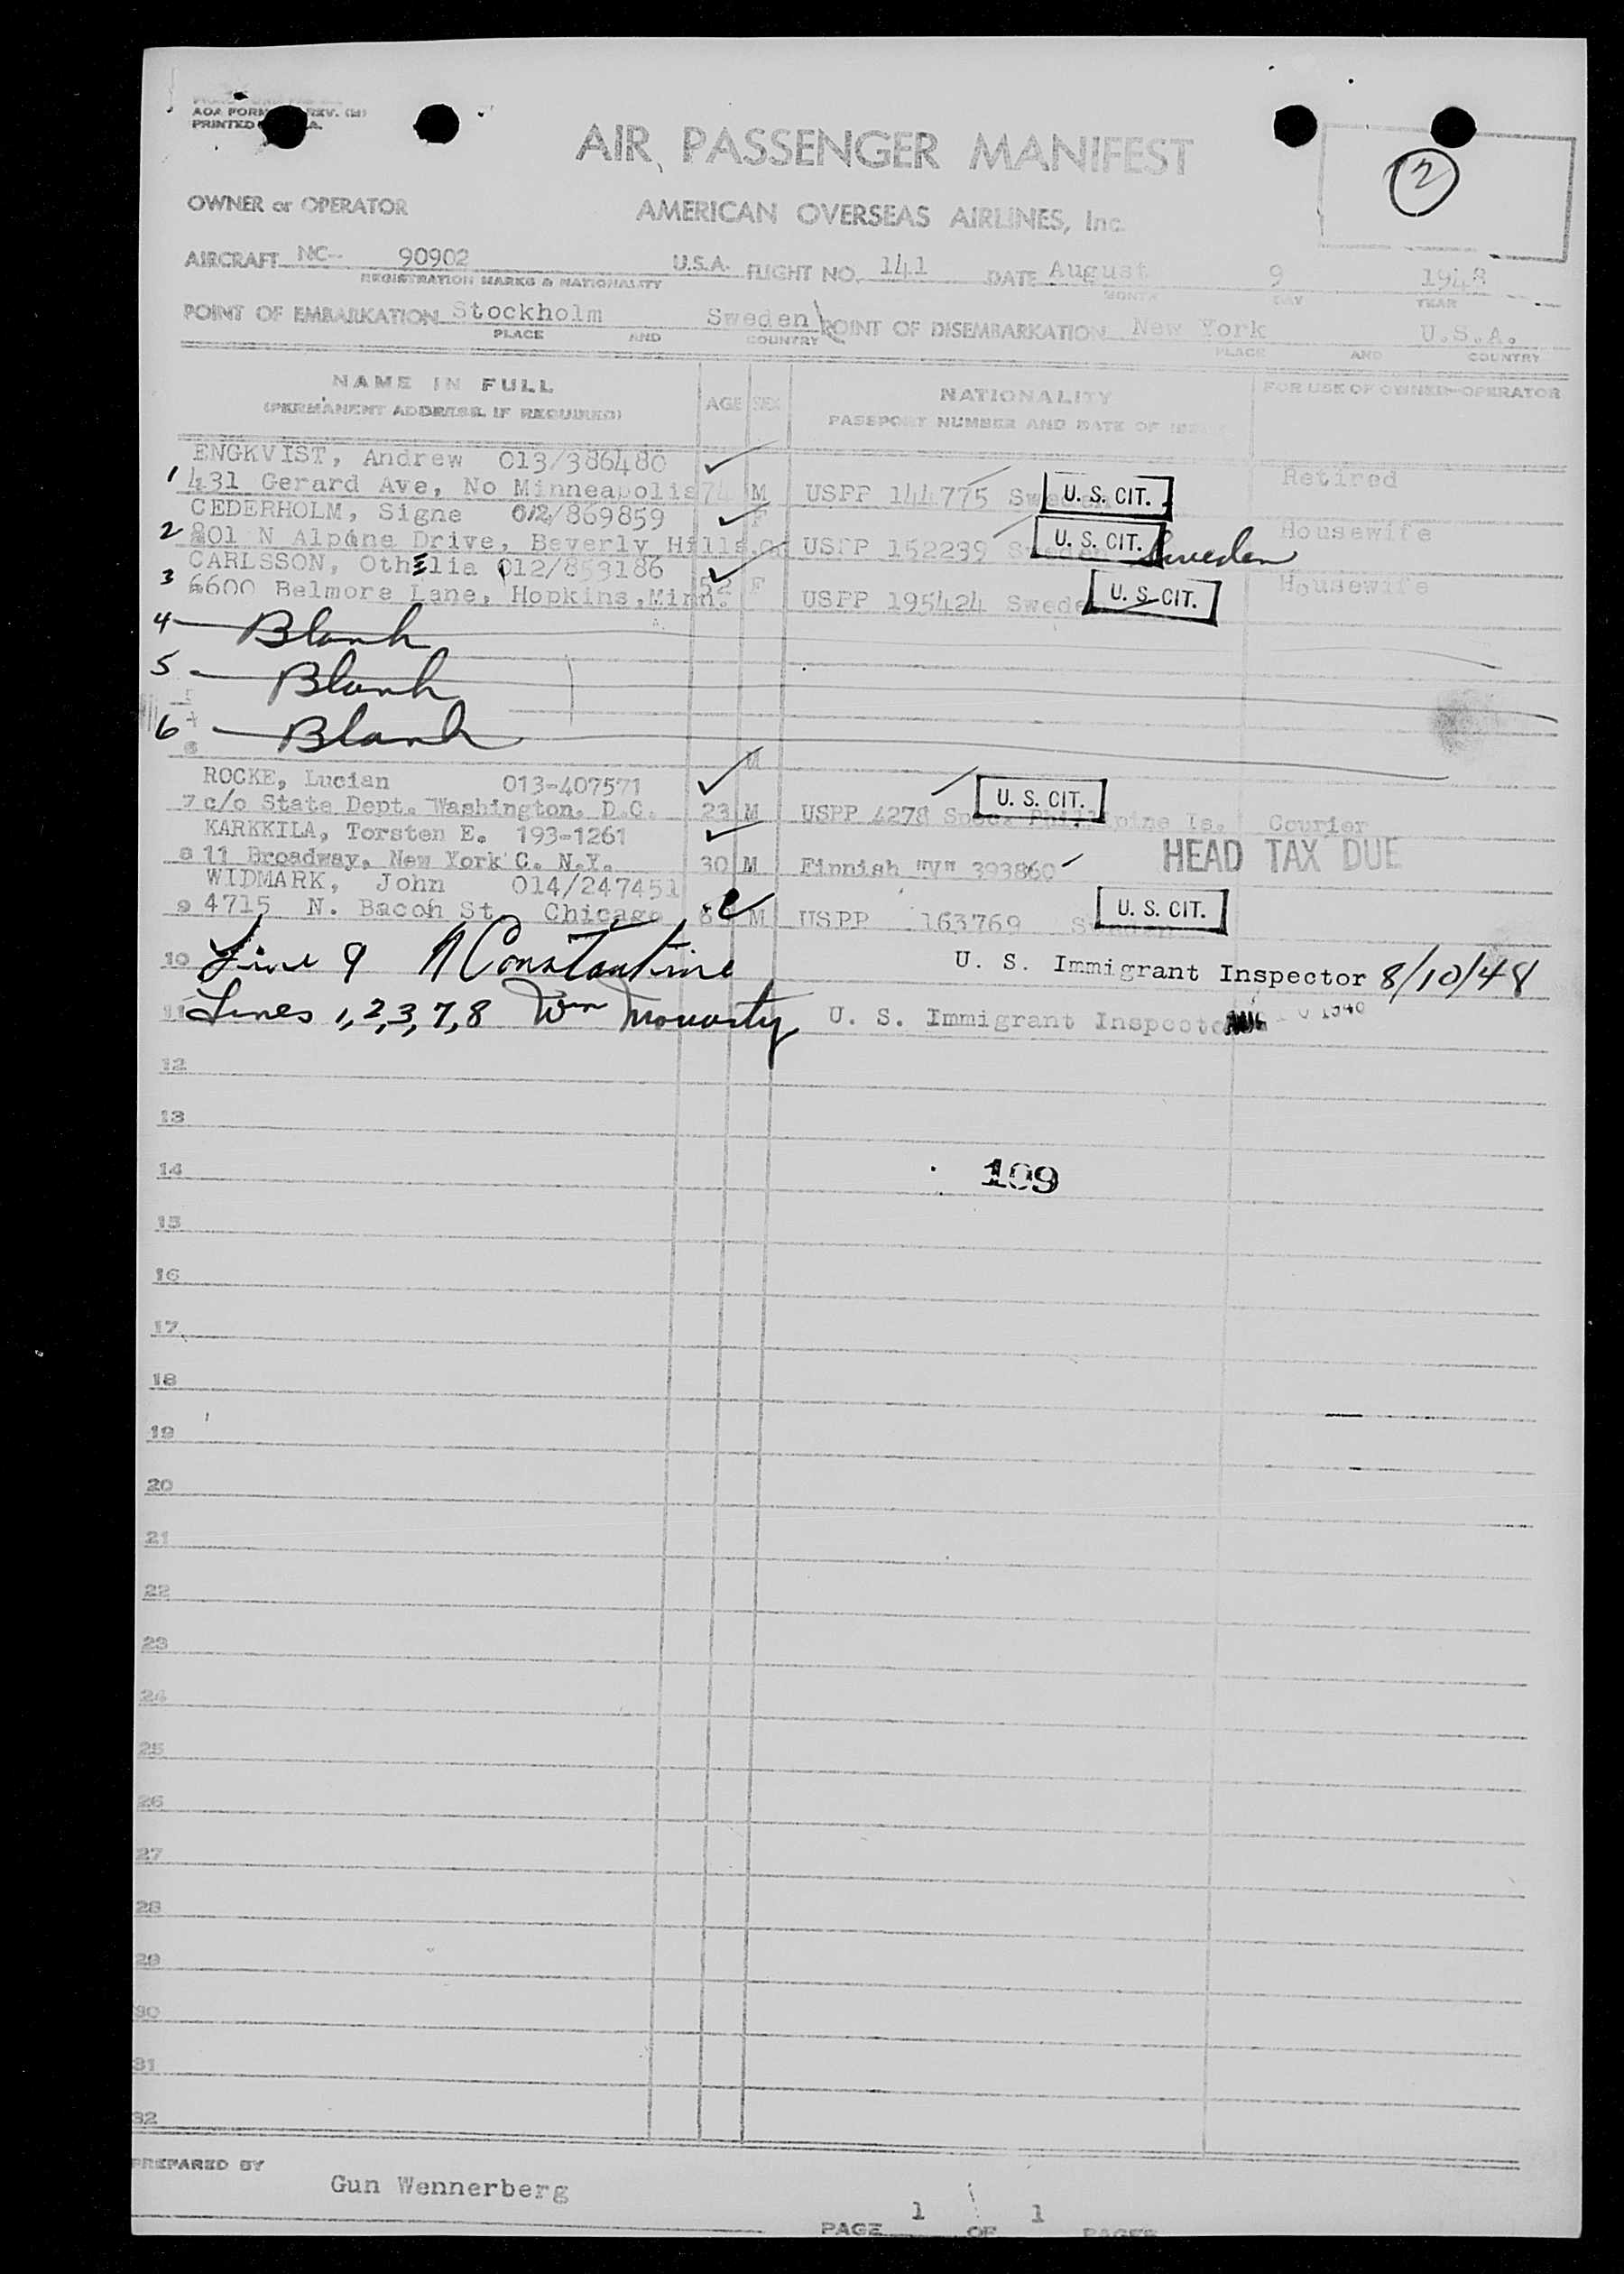 AOA FORM REV. (M)
PRINTED A.
AIR PASSENGER MANIFEST
2
OWNER or OPERATOR AMERICAN OVERSEAS AIRLINES, Inc.
AIRCRAFT NC- 90902 U.S.A. FLIGHT NO. 141 DATE August 9 1948
REGISTRATION MARKS & NATIONALITY MONTH DAY YEAR
POINT OF EMBARKATION Stockholm Sweden POINT OF DISEMBARKATION New York U.S.A.
PLACE AND COUNTRY PLACE AND COUNTRY
NAME IN FULL AGE SEX NATIONALITY FOR USE OF OWNER-OPERATOR
(PERMANENT ADDRESS, IF REQUIRED) PASSPORT NUMBER AND DATE OF
ENGKVIST, Andrew 013/386480
1 431 Gerard Ave, No Minneapolis 74 M USPP 144775 Sweden U. S. CIT. Retired
CEDERHOLM, Signe 012/869859 F
2 801 N Alpine Drive, Beverly Hills, USPP 152239 Sweden U. S. CIT. Sweden Housewife
CARLSSON, Othelia 012/853186
3 6600 Belmore Lane, Hopkins, Minn. 52 F USPP 195424 Sweden U. S. CIT. Housewife
4 Blank
5 Blank
6 Blank
6
M
ROCKE, Lucian 013-407571
7 c/o State Dept. Washington, D.C. 23 M USPP 4278 Philippine Is. U. S. CIT. Courier
KARKKILA, Torsten E. 193-1261
8 11 Broadway, New York C. N.Y. 30 M Finnish "V" 393860 HEAD TAX DUE
WIDMARK, John 014/247451
9 4715 N. Bacon St Chicago M USPP 163769 Sweden U. S. CIT.
10 Line 9 A Constantine U. S. Immigrant Inspector 8/10/48
11 Lines 1, 2, 3, 7, 8 Wm Moriarty U. S. Immigrant Inspector AUG
12
13
14 109
15
16
17
18
19
20
21
22
23
24
25
26
27
28
29
30
31
32
PREPARED BY
Gun Wennerberg
PAGE 1 OF 1 PAGES